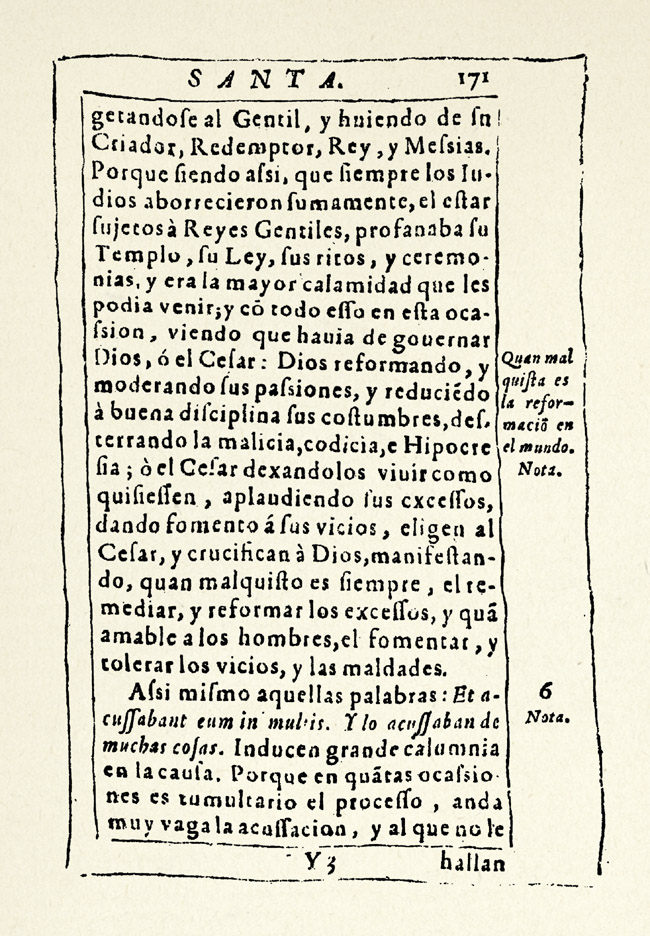 SANTA. 171
getandoſe al Gentil, y huiendo de ſu
Criador, Redemptor, Rey, y Meſsias.
Porque ſiendo aſsi, que ſiempre los Iu-
dios aborrecieron ſumamente, el eſtar
ſujetos à Reyes Gentiles, profanaba ſu
Templo, ſu Ley, ſus ritos, y ceremo-
nias, y era la mayor calamidad que les
podia venir; y cõ todo eſſo en eſta oca-
ſsion, viendo que hauia de gouernar
Dios, ó el Ceſar: Dios reformando, y
moderando ſus paſsiones, y reduciẽdo
à buena diſciplina ſus coſtumbres, deſ-
terrando la malicia, codicia, e Hipocre
ſia; ò el Ceſar dexandolos viuir como
quiſieſſen, aplaudiendo ſus exceſſos,
dando fomento á ſus vicios, eligen al
Ceſar, y crucifican à Dios, manifeſtan-
do, quan malquiſto es ſiempre, el re-
mediar, y reformar los exceſſos, y quã
amable a los hombres, el fomentar, y
tolerar los vicios, y las maldades.
Aſsi miſmo aquellas palabras: Et a-
cuſſabant eum in multis. Y lo acuſſaban de
muchas coſas. Inducen grande calumnia
en la cauſa. Porque en quãtas ocaſsio-
nes es tumultario el proceſſo, anda
muy vaga la acuſſacion, y al que no le
Y 3 hallan
Quan mal
quiſta es
la refor-
maciõ en
el mundo.
Nota.
6
Nota.